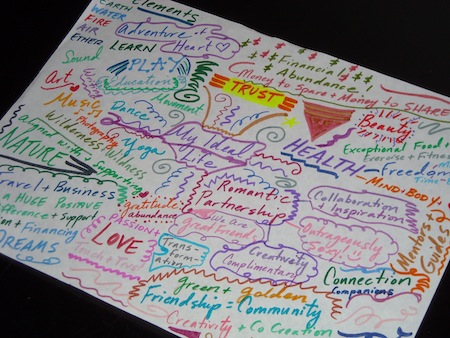 Elements
EARTH
WATER
FIRE
AIR
ETHER
Adventure
Heart
LEARN
Sound
PLAY
Education
Art
Music
Photography
Dance
Movement
TRUST
$ $ $ $
Financial
Abundance
Money to Spare + Money to SHARE
Beauty
Exceptional Food
Exercise + Fitness
HEALTH
Freedom
MIND + BODY
Yoga
Wilderness
aligned with + supporting
NATURE
My Ideal
Life
Travel + Business
A HUGE POSITIVE
+ Support
+ Financing
DREAMS
gratitude
abundance
PASSION +
LOVE
Romantic
Partnership
We are
great Friends
Collaboration
Inspiration
Outrageously
Sexy
Mentors +
Guides
Trans-
form-
ation
Creatively
Complimentary
Connection
Companions
green + golden
Friendship = Community
Creativity + Co Creation